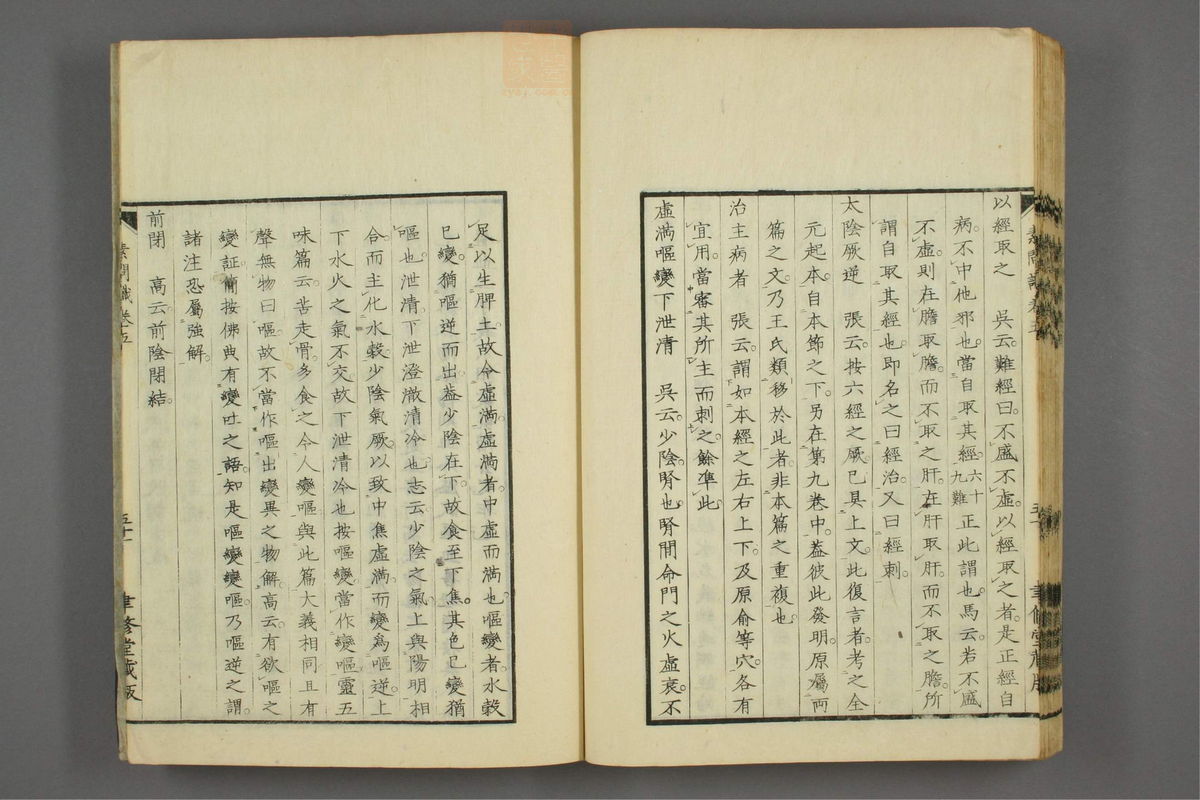 以經取之　吳云難經曰不盛不虛以經取之者是正經自
病不中他邪也當自取其經六十九難正此謂也馬云若不盛
不虛則在膽取膽而不取之肝在肝取肝而不取之膽所
謂自取其經也即名之曰經治又曰經刺
太陰厥逆　張云按六經之厥已具上文此復言者考之全
元起本自本節之下另在第九卷中蓋彼此發明原屬兩
篇之文乃王氏類移於此者非本篇之重複也
治主病者　張云謂如本經之左右上下及原俞等穴各有
宜用當審其所主而刺之餘準此
虛滿嘔變下泄清　吳云少陰腎也腎間命門之火虛衰不
足以生脾土故令虛滿虛滿者中虛而滿也嘔變者水穀
已變猶嘔逆而出蓋少陰在下故食至下焦其色已變猶
嘔也泄清下泄澄澈清冷也志云少陰之氣上與陽明相
合而主化水穀少陰氣厥以致中焦虛滿而變爲嘔逆上
下水火之氣不交故下泄清冷也按嘔變當作變嘔靈五
味篇云苦走骨多食之令人變嘔與此篇大義相同且有
聲無物曰嘔故不當作嘔出變異之物解高云有欲嘔之
變証簡按佛典有變吐之語知是嘔變變嘔乃嘔逆之謂
諸注恐屬強解
前閉　高云前陰閉結
素問識卷五
五十一
聿修堂藏版